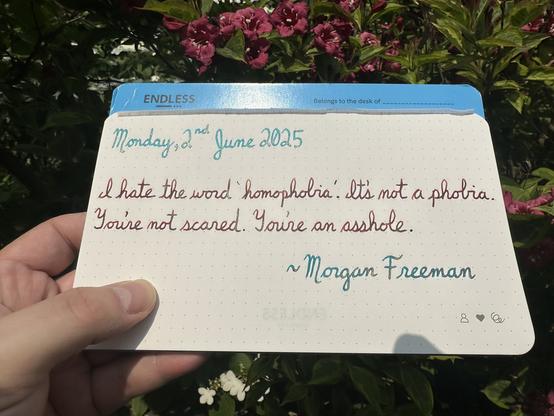 ENDLESS
Belongs to the desk of
Monday, 2nd June 2025
I hate the word 'homophobia'. It's not a phobia.
You're not scared. You're an asshole.
~Morgan Freeman
ENDLESS